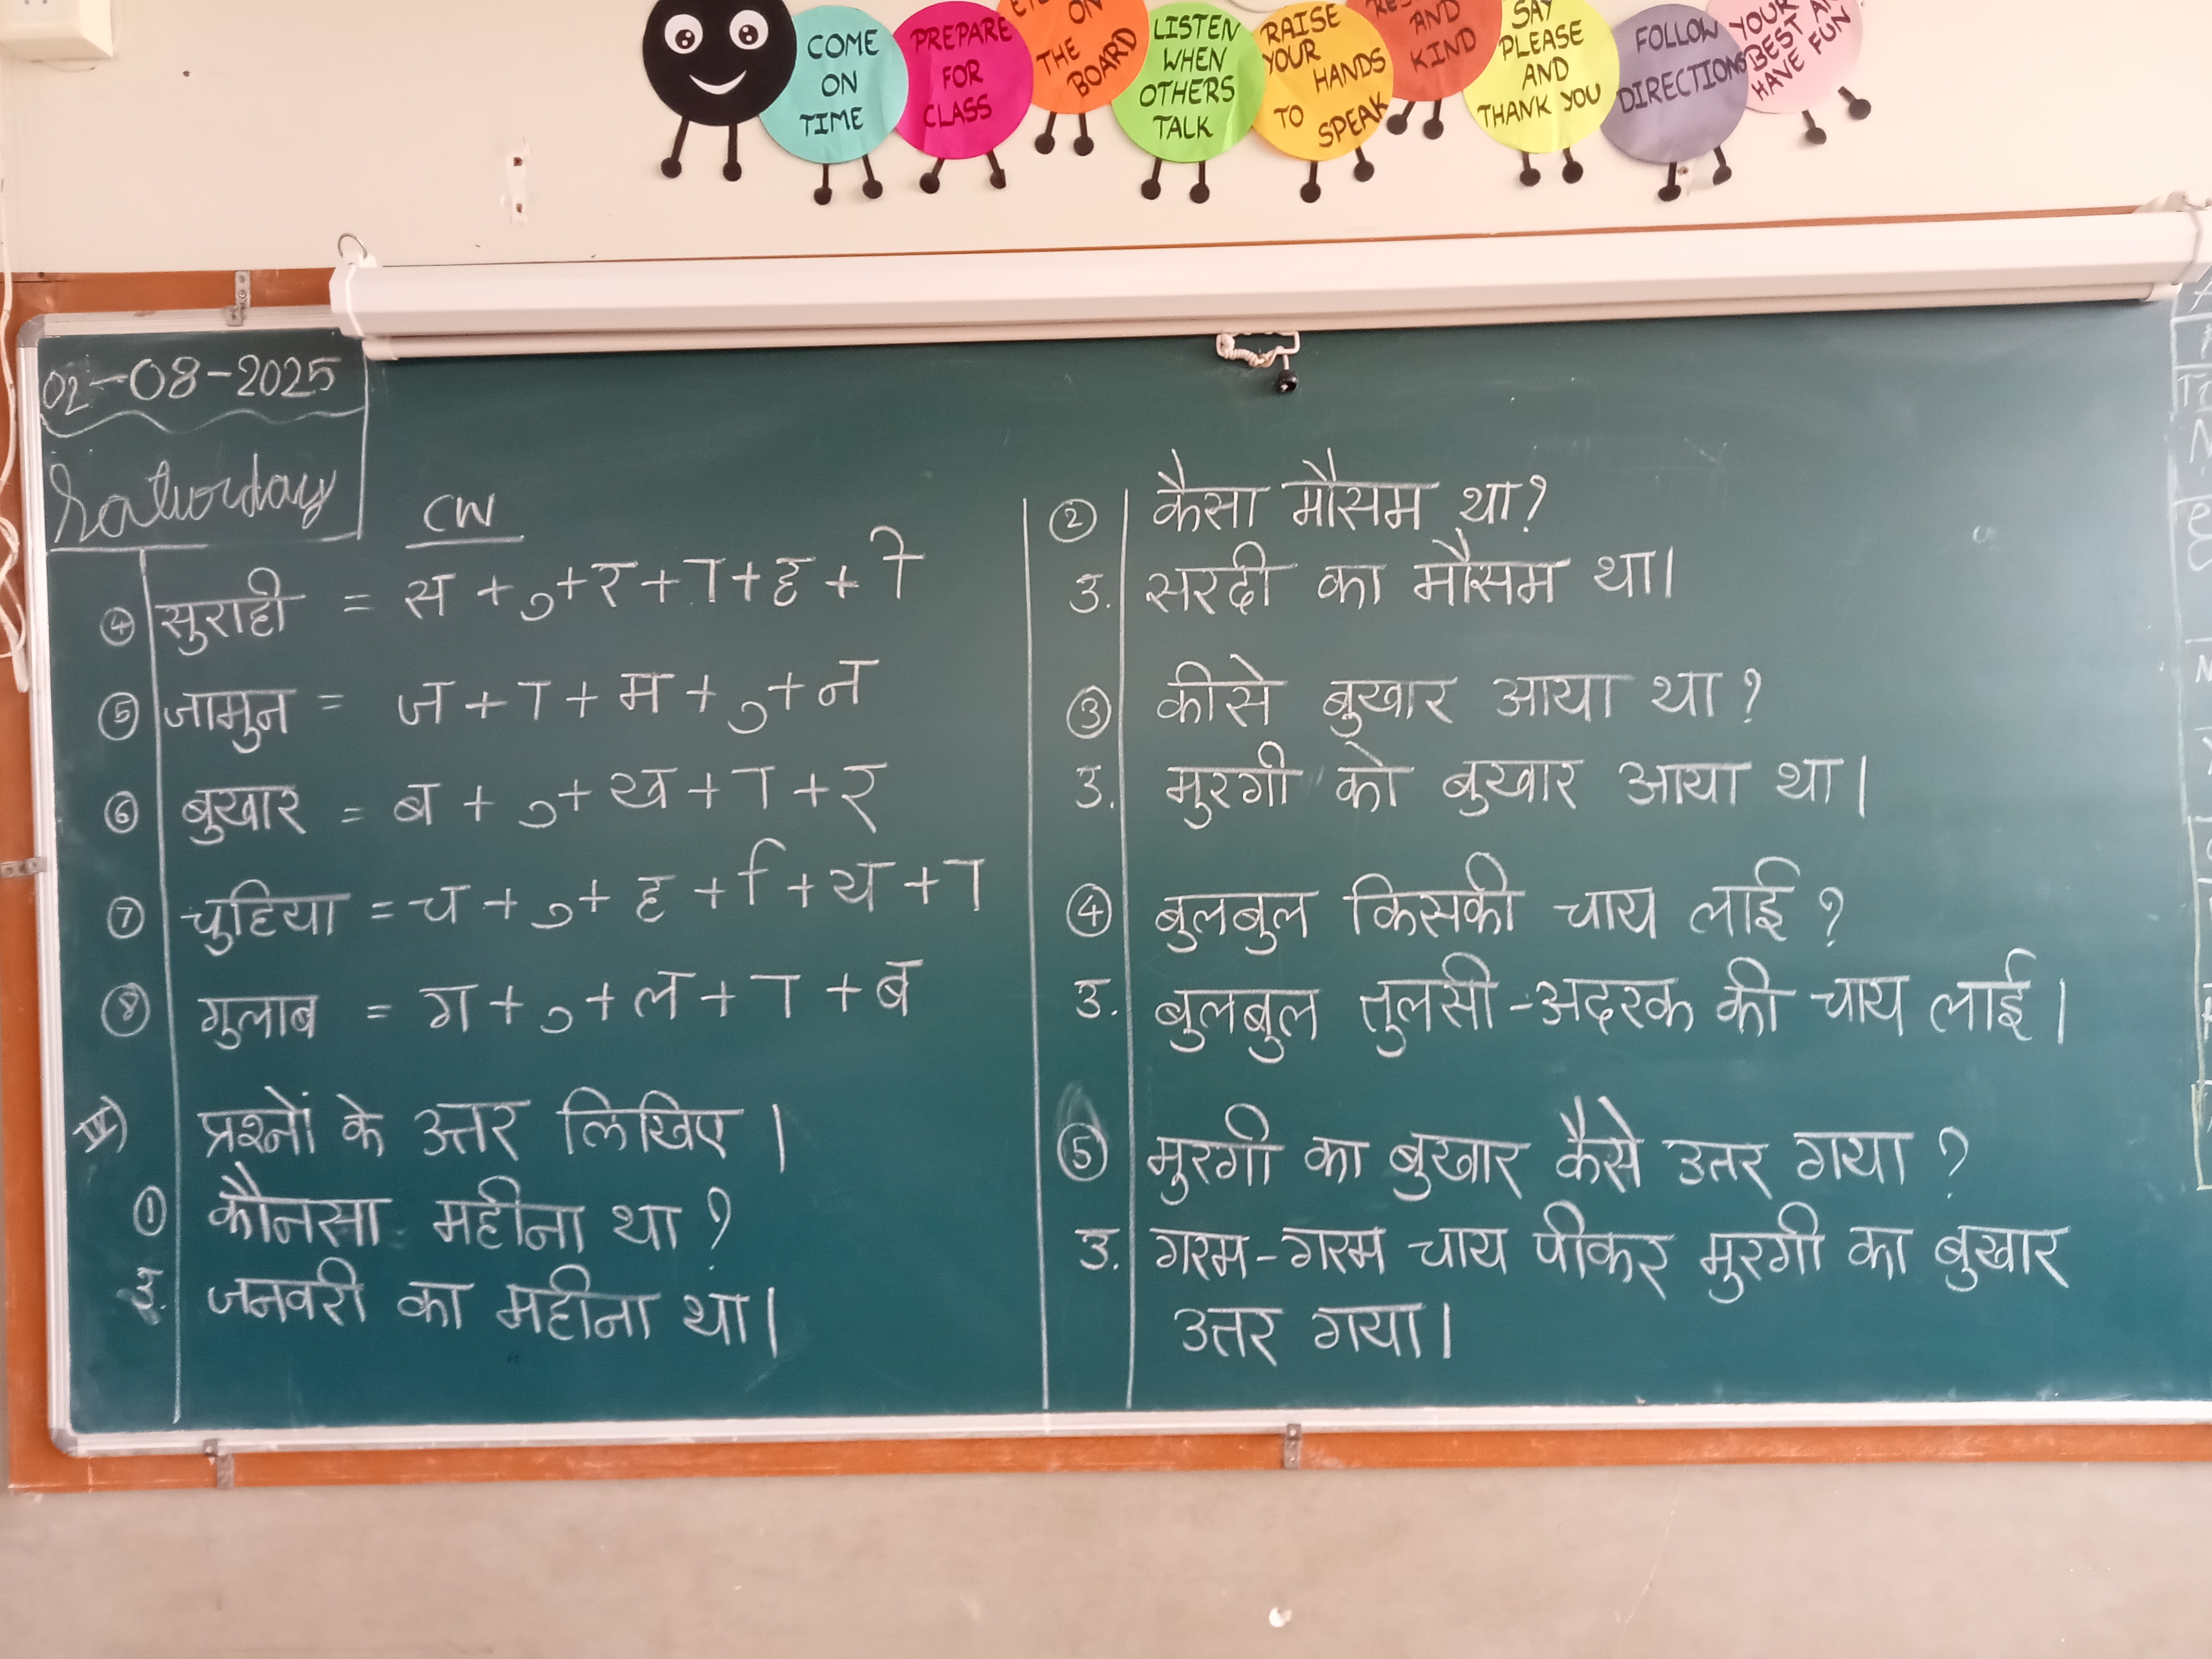 COME
ON
TIME
PREPARE
FOR
CLASS
ON
THE
BOARD
LISTEN
WHEN
OTHERS
TALK
RAISE
YOUR
HANDS
TO
SPEAK
AND
KIND
SAY
PLEASE
AND
THANK YOU
FOLLOW
DIRECTIONS
YOUR
BEST
HAVE FUN
02-08-2025
Saturday
CW
④ सुराही = स + ु + र + ा + ह + ी
⑤ जामुन = ज + ा + म + ु + न
⑥ बुखार = ब + ु + ख + ा + र
⑦ चुहिया = च + ु + ह + ि + य + ा
⑧ गुलाब = ग + ु + ल + ा + ब
प्रश्नों के उत्तर लिखिए |
① कौनसा महीना था ?
उ. जनवरी का महीना था|
② कैसा मौसम था?
उ. सरदी का मौसम था|
③ कीसे बुखार आया था ?
उ. मुरगी को बुखार आया था |
④ बुलबुल किसकी चाय लाई ?
उ. बुलबुल तुलसी-अदरक की चाय लाई |
⑤ मुरगी का बुखार कैसे उतर गया ?
उ. गरम-गरम चाय पीकर मुरगी का बुखार
उत्तर गया|